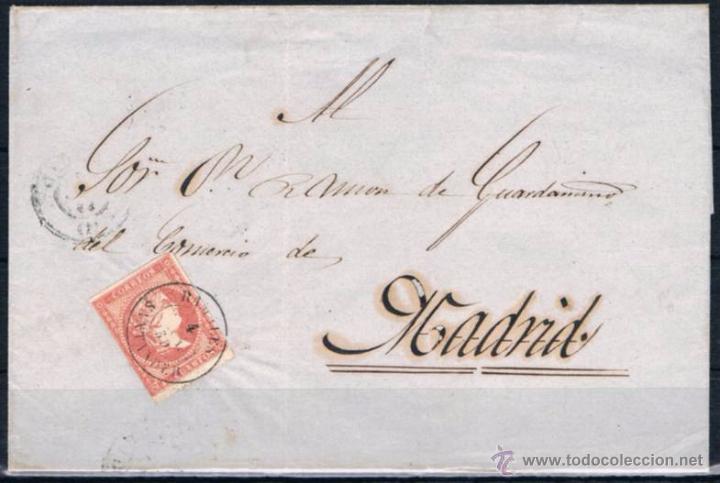 Al
Sor. Dn. Ramon de Guardamino
del Comercio de
Madrid
CORREOS
CUARTOS
© www.todocoleccion.net